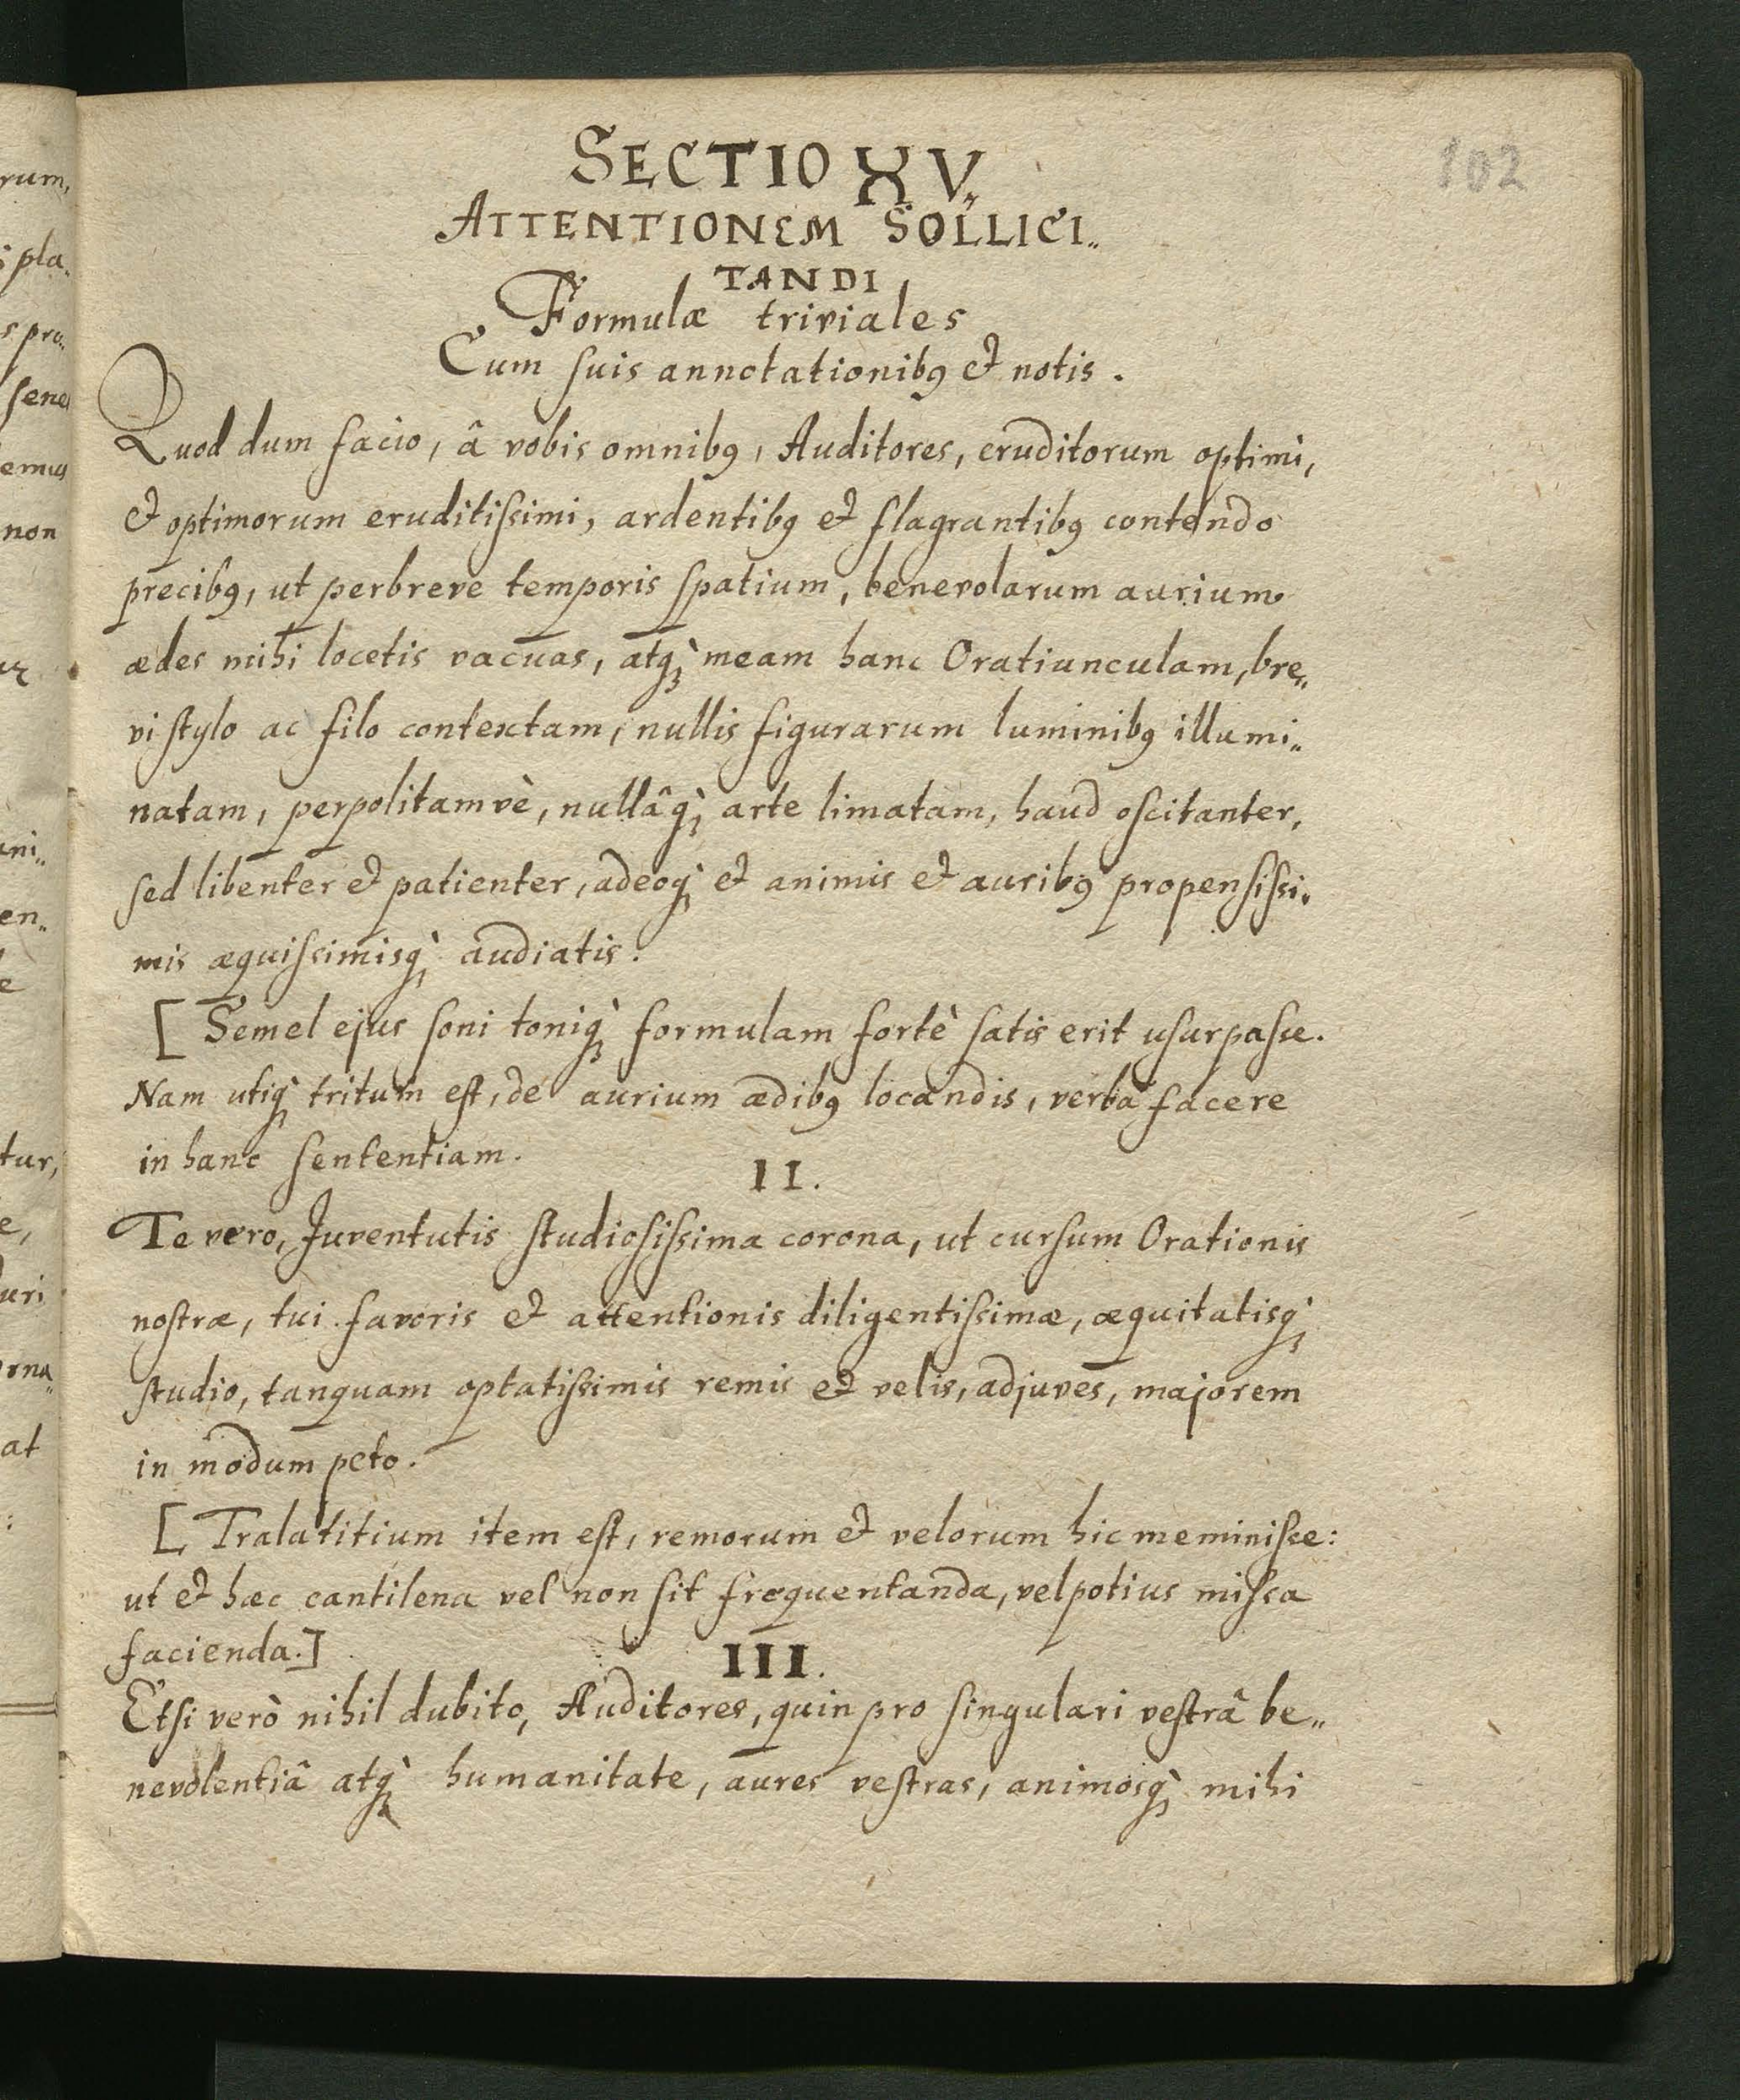 102
SECTIO XV.
ATTENTIONEM SOLLICI„
TANDI
Formulæ triviales
Cum ſuis annotationibꝰ et notis.
Quod dum facio, â vobis omnibꝰ, Auditores, eruditorum optimi,
et optimorum eruditiſsimi, ardentibꝰ et flagrantibꝰ contendo
precibꝰ, ut perbreve temporis ſpatium, benevolarum aurium
ædes mihi locetis vacuas, atq́ꝫ meam hanc Oratiunculam, bre„
vi ſtylo ac filo contextam, nullis figurarum luminibꝰ illumi„
natam, perpolitamvè, nullâq́ꝫ arte limatam, haud oſcitanter,
ſed libenter et patienter, adeoq́ꝫ et animis et auribꝰ propenſiſsi„
mis æquiſsimisq́ꝫ audiatis.
[ Semel ejus ſoni toniq́ꝫ formulam fortè ſatis erit uſurpaſse.
Nam utiq́ꝫ tritum eſt, de aurium ædibꝰ locandis, verba facere
in hanc ſententiam.
II.
Te vero, Juventutis ſtudioſiſsima corona, ut curſum Orationis
noſtræ, tui favoris et attentionis diligentiſsimæ, æquitatisq́ꝫ
ſtudio, tanquam optatiſsimis remis et velis, adjuves, majorem
in modum peto.
[ Tralatitium item eſt, remorum et velorum hic meminiſse:
ut et hæc cantilena vel non ſit frequentanda, vel potius miſsa
facienda.]
III.
Etſi verò nihil dubito, Auditores, quin pro ſingulari veſtrâ be„
nevolentiâ atq́ꝫ humanitate, aures veſtras, animosq́ꝫ mihi